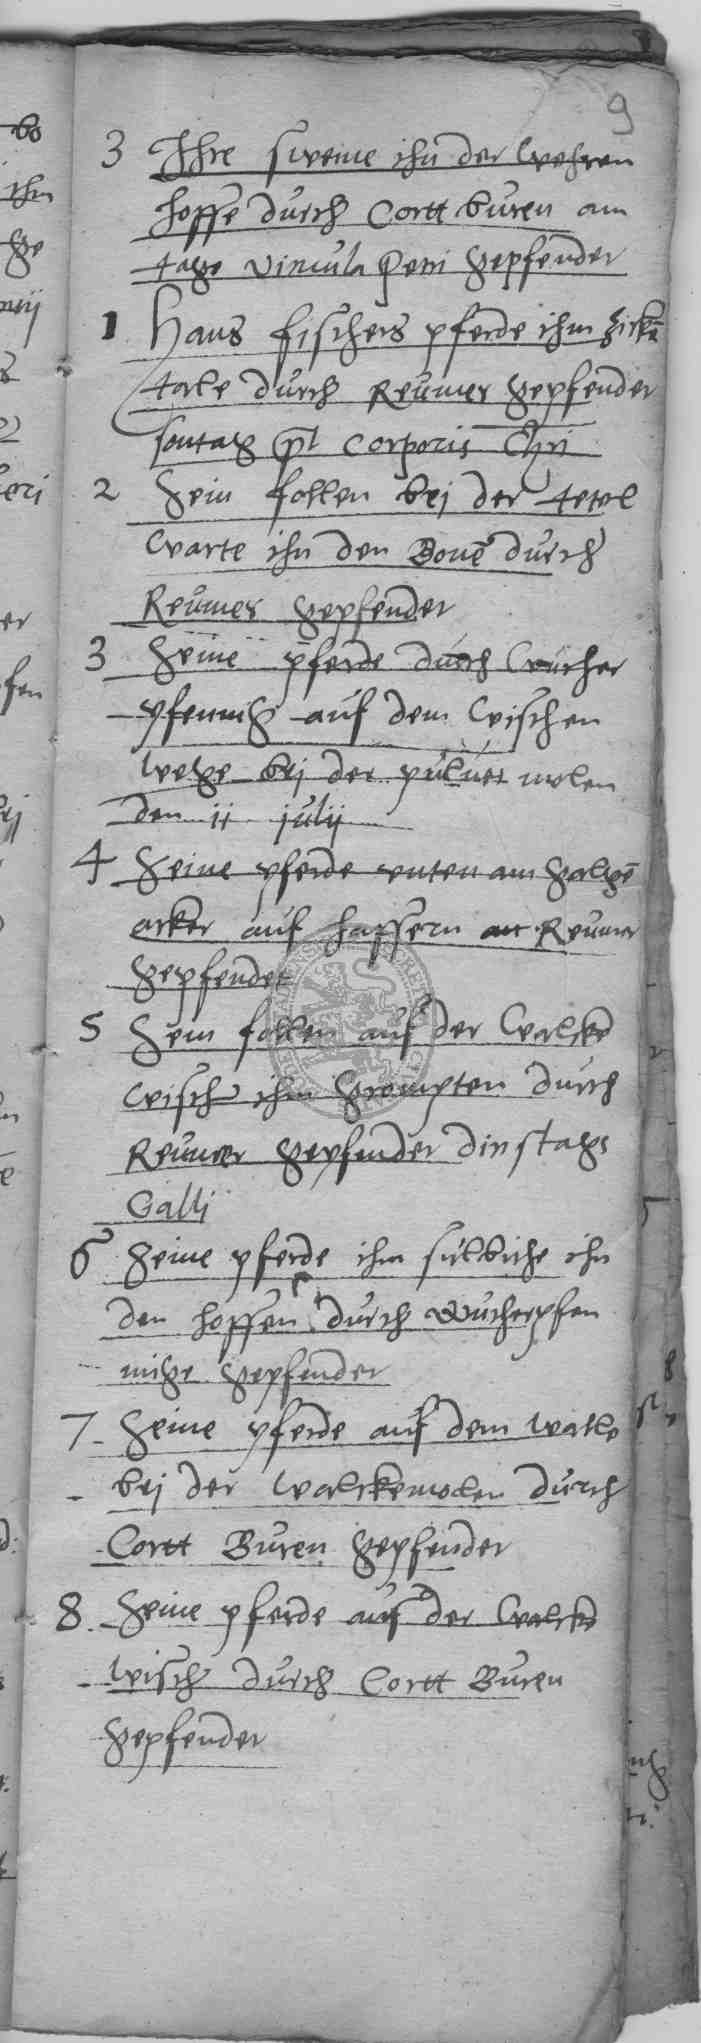 9
3 Ihre sweine ihn der wehren
hoffe durch Cortt buren am
tage vincula Petri gepfender
1 Hans fischers pferde ihm zicken
tale durch Reumer gepfender
sontag pt Corporis Chri
2 Sein follen bej der tetel
warte ihn den Bonē durch
Reumer gepfender
3 Seine pferde durch wucher
pfennig auf dem wischen
wege bej der puluer molen
den ii julij
4 Seine pferde unten am galgē
acker auf haffern Reumer
gepfendet
5 Sein follen auf der walcke
wisch ihm grompten durch
Reumer gepfender dinstags
Galli
6 Seine pferde ihm sulbiche ihn
den hoffen durch wucherpfen
nige gepfender
7 Seine pferde auf dem walle
bej der walckemolen durch
Cortt Buren gepfender
8 Seine pferde auf der walcke
wisch durch Cortt Buren
gepfender